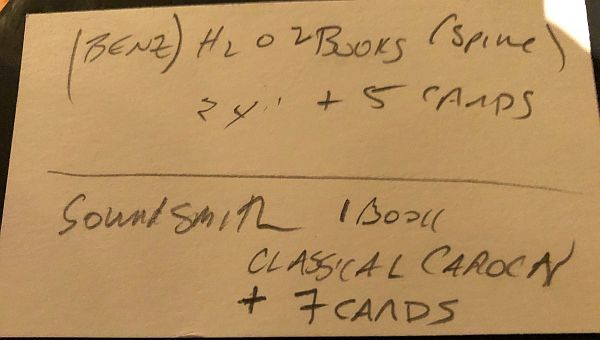 (BENZ) H2O 2 BOOKS (SPINE)
+ 5 CARDS
SOUNDSMITH 1 BOOK
CLASSICAL
+ 7 CARDS